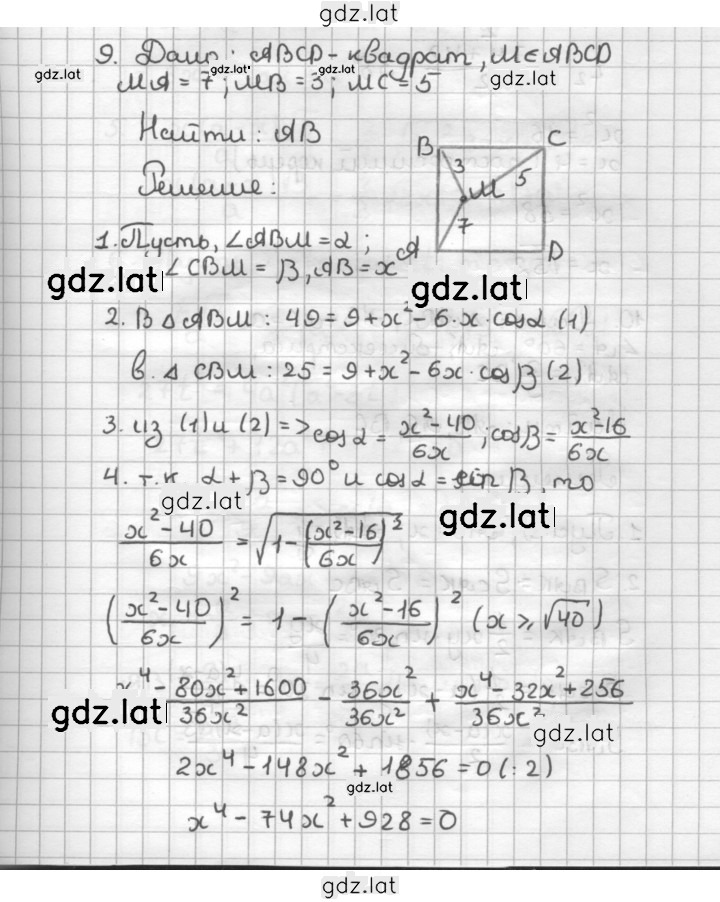 gdz.lat
9. Дано: ABCD - квадрат, M∈ABCD
gdz.lat gdz.lat gdz.lat gdz.lat
MA = 7; MB = 3; MC = 5
Найти: AB
B C
3 5
M
7
A D
Решение:
1. Пусть, ∠ABM = α;
gdz.lat ∠CBM = β, AB = x
gdz.lat
2. В Δ ABM: 49 = 9 + x² - 6·x·cosα (1)
в Δ CBM: 25 = 9 + x² - 6x·cosβ (2)
3. из (1) и (2) => cosα = (x²-40)/6x; cosβ = (x²-16)/6x
4. т.к α + β = 90° и cosα = sin β, то
gdz.lat gdz.lat
(x²-40)/6x = √(1-((x²-16)/(6x))²)
((x²-40)/6x)² = 1 - ((x²-16)/6x)² (x ⩾ √40)
x⁴-80x²+1600/36x² - 36x²/36x² + x⁴-32x²+256/36x²
gdz.lat gdz.lat
2x⁴-148x²+1856=0 (:2)
gdz.lat
x⁴-74x²+928=0
gdz.lat